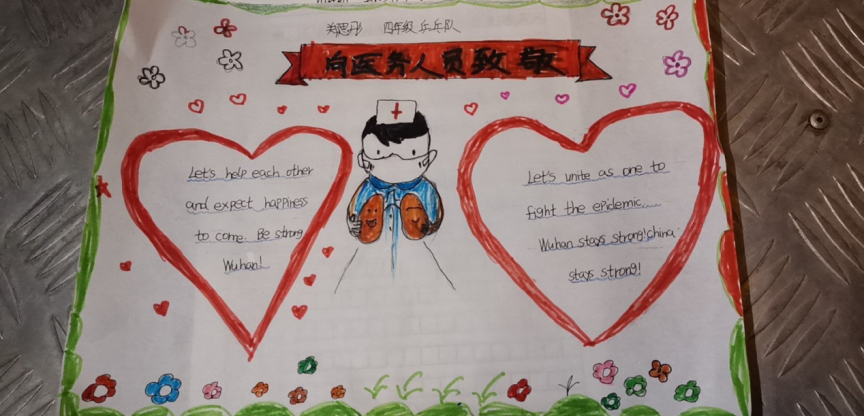 郑思彤 四年级 乒乓队
向医务人员致敬
Let's help each other
and expect happiness
to come. Be strong
Wuhan!
Let's unite as one to
fight the epidemic......
Wuhan stays strong! china
stays strong!